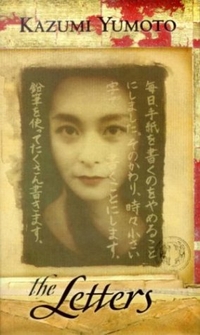 KAZUMI YUMOTO
毎日、手紙を書くのをやめること
にしました。そのかわり、時々小さい
ことにします。
鉛筆を使ってたくさん書きます。
the Letters